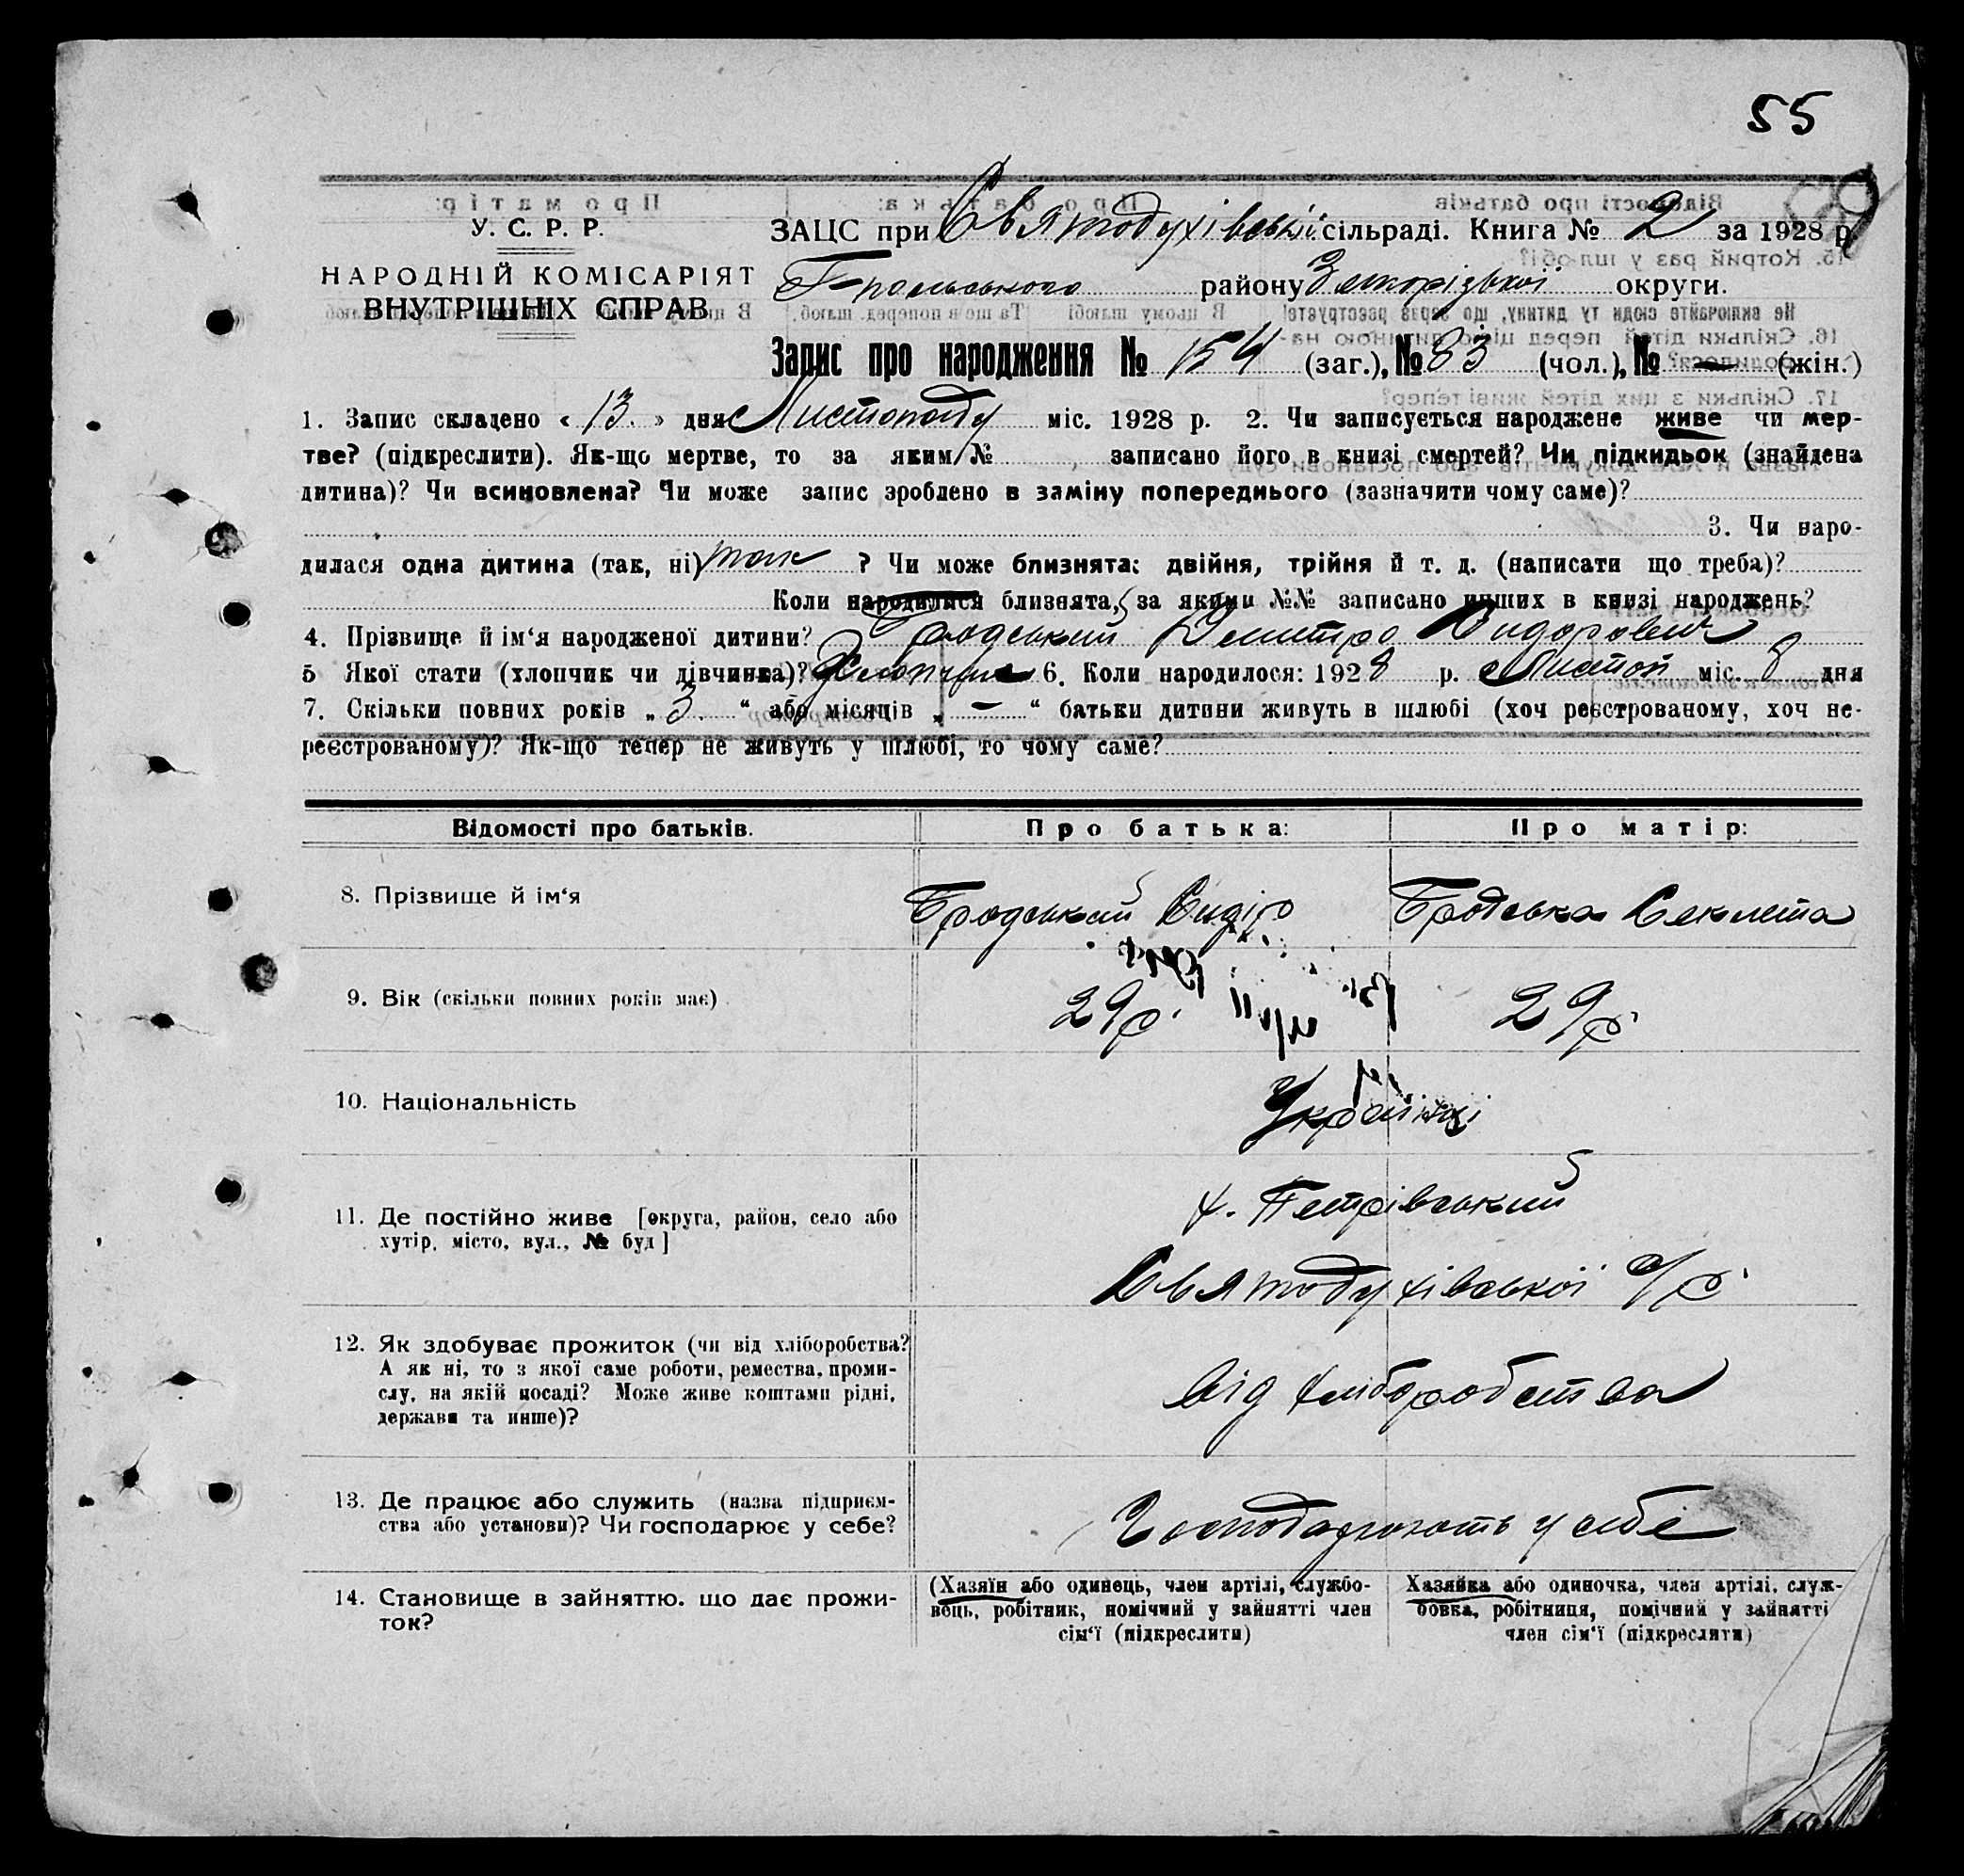 55
У. С. Р. Р.
НАРОДНІЙ КОМІСАРІЯТ
ВНУТРІШНІХ СПРАВ
ЗАЦС при Святодухівській сільраді. Книга № 2 за 1928 р.
району округи.
Запис про народження № 154 (заг.), № 83 (чол.), № — (жін.)
1. Запис складено « 13. » дня Листопаду міс. 1928 р. 2. Чи записується народжене живе чи мер-
тве? (підкреслити). Як-що мертве, то за яким № записано його в книзі смертей? Чи підкидьок (знайдена
дитина)? Чи всиновлена? Чи може запис зроблено в заміну попереднього (зазначити чому саме)?
3. Чи наро-
дилася одна дитина (так, ні) так ? Чи може близнята: двійня, трійня й т. д. (написати що треба)?
Коли народилися близнята, за якими №№ записано инших в книзі народжень?
4. Прізвище й ім'я народженої дитини? Бродський Дмитро Сидорович
5 Якої стати (хлопчик чи дівчинка)? Хлопчик 6. Коли народилося: 1928 р. Листоп міс. 8 дня
7. Скільки повних років „ 3. “ або місяців „ — “ батьки дитини живуть в шлюбі (хоч реєстрованому, хоч не-
реєстрованому)? Як-що тепер не живуть у шлюбі, то чому саме?
Відомості про батьків. Про батька: Про матір:
8. Прізвище й ім‘я Бродський Сидір Бродська Секлета
9. Вік (скільки повних років має) 29 р. 29 р.
10. Національність Українці
11. Де постійно живе [округа, район, село або х. Петрівський
хутір, місто, вул., № буд] Святодухівської с/р.
12. Як здобуває прожиток (чи від хліборобства?
А як ні, то з якої саме роботи, ремества, проми-
слу, на якій посаді? Може живе коштами рідні, від хліборобства
держави та инше)?
13. Де працює або служить (назва підприєм-
ства або установи)? Чи господарює у себе? Господарюють у себе
14. Становище в зайняттю, що дає прожи-
ток?
(Хазяїн або одинець, член артілі, службо-
вець, робітник, помічний у зайнятті член
сім‘ї (підкреслити)
Хазяйка або одиночка, член артілі, служ-
бовка, робітниця, помічний у зайнятті
член сім‘ї (підкреслити)